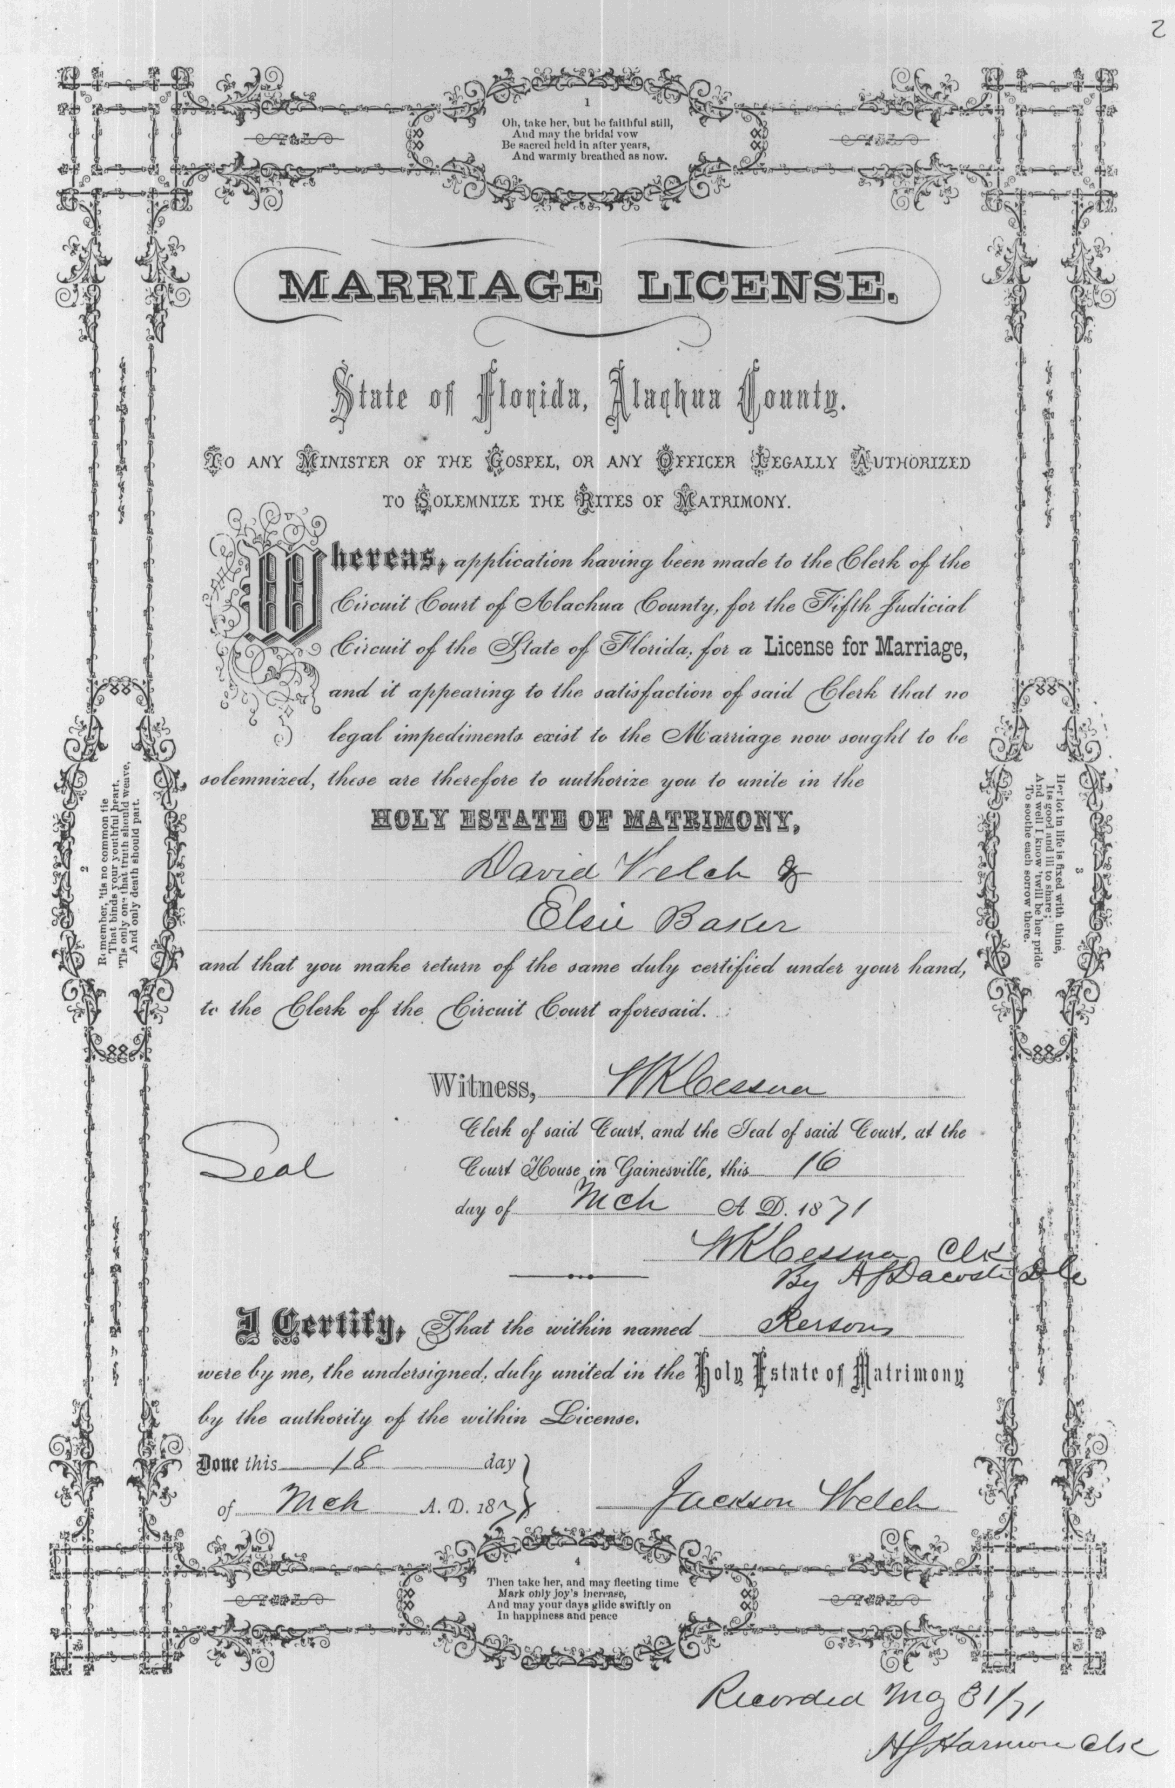 2
1
Oh, take her, but be faithful still,
And may the bridal vow
Be sacred held in after years,
And warmly breathed as now.
MARRIAGE LICENSE.
State of Florida, Alachua County.
TO ANY MINISTER OF THE GOSPEL, OR ANY OFFICER LEGALLY AUTHORIZED
TO SOLEMNIZE THE RITES OF MATRIMONY.
Whereas, application having been made to the Clerk of the
Circuit Court of Alachua County, for the Fifth Judicial
Circuit of the State of Florida, for a License for Marriage,
and it appearing to the satisfaction of said Clerk that no
legal impediments exist to the Marriage now sought to be
solemnized, these are therefore to authorize you to unite in the
HOLY ESTATE OF MATRIMONY,
David Welch &
Elsie Baker
and that you make return of the same duly certified under your hand,
to the Clerk of the Circuit Court aforesaid.
2
Remember, 'tis no common tie
That binds your youthful heart,
'Tis only one that truth should weave,
And only death should part.
3
Her lot in life is fixed with thine,
Its good and ill to share;
And well I know 'twill be her pride
To soothe each sorrow there.
Witness, WKCessna
Clerk of said Court, and the Seal of said Court, at the
Seal
Court House in Gainesville, this 16
day of Mch A D. 1871
WKCessna Clk
By A J Dacosta D.C.
I Certify, That the within named Persons
were by me, the undersigned, duly united in the Holy Estate of Matrimony
by the authority of the within License.
Done this 18 day
of Mch A. D. 1871
Jackson Welch
4
Then take her, and may fleeting time
Mark only joy's increase,
And may your days glide swiftly on
In happiness and peace
Recorded 31/71
Clk